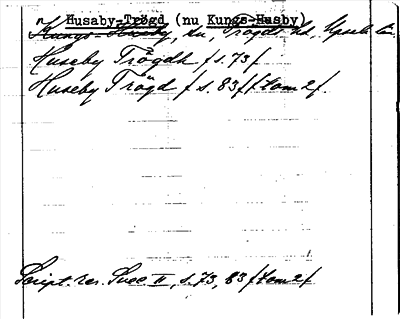 n Husaby-Trögd (nu Kungs-Husby)
Kungs-Husby, sn, Trögds hd, Upsala län.
Huseby Trögdh f s. 73 f
Huseby Trögd f s. 83 f (tom 2 f.
Script. rer. Suec II, s. 73, 83 f (tom 2 f